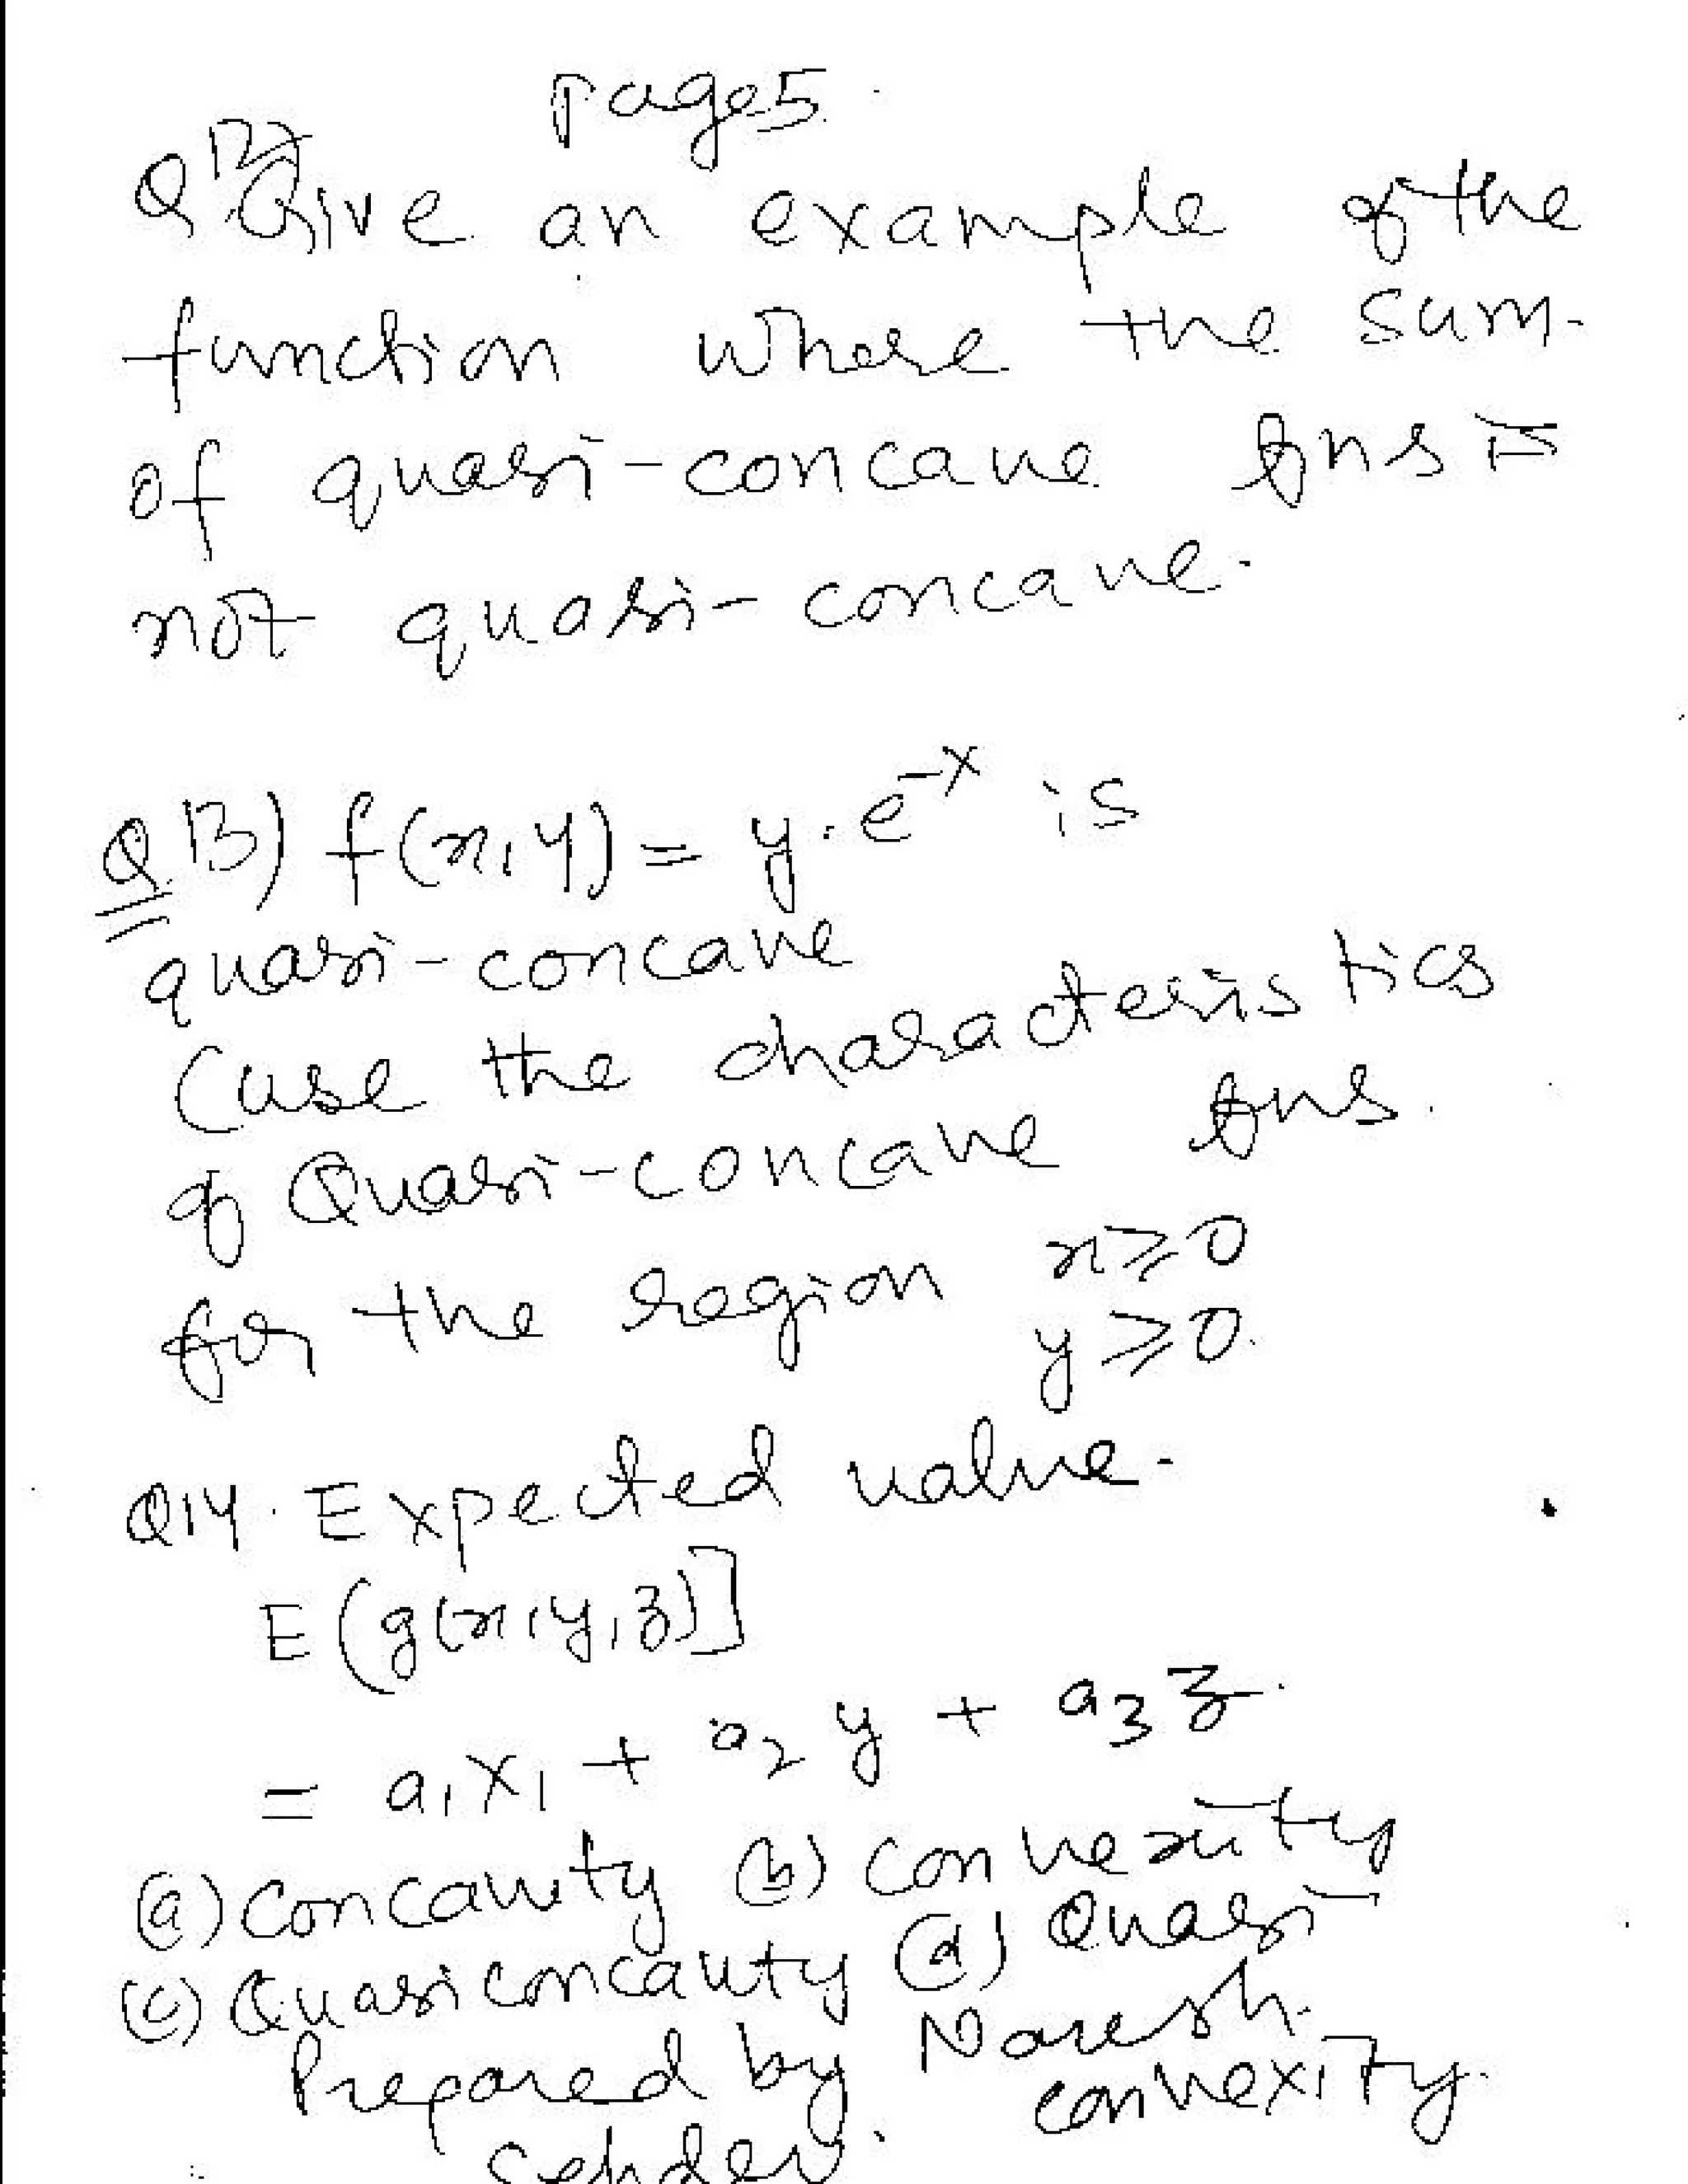 Page 5.
Q 12) Give an example of the
function where the sum.
of quasi-concave fns is
not quasi-concave.
Q 13) f(x,y) = y.e^-x is
quasi-concave
(use the characteristics
of Quasi-concave fns.
for the region x ≥ 0
y ≥ 0.
Q14. Expected value.
E(g(x,y,z)]
= a₁x₁ + a₂y + a₃z.
(a) concavity (b) convexity
(c) Quasiconcavity (d) Quasi
Prepared by Naresh.
convexity.
Sehdev.